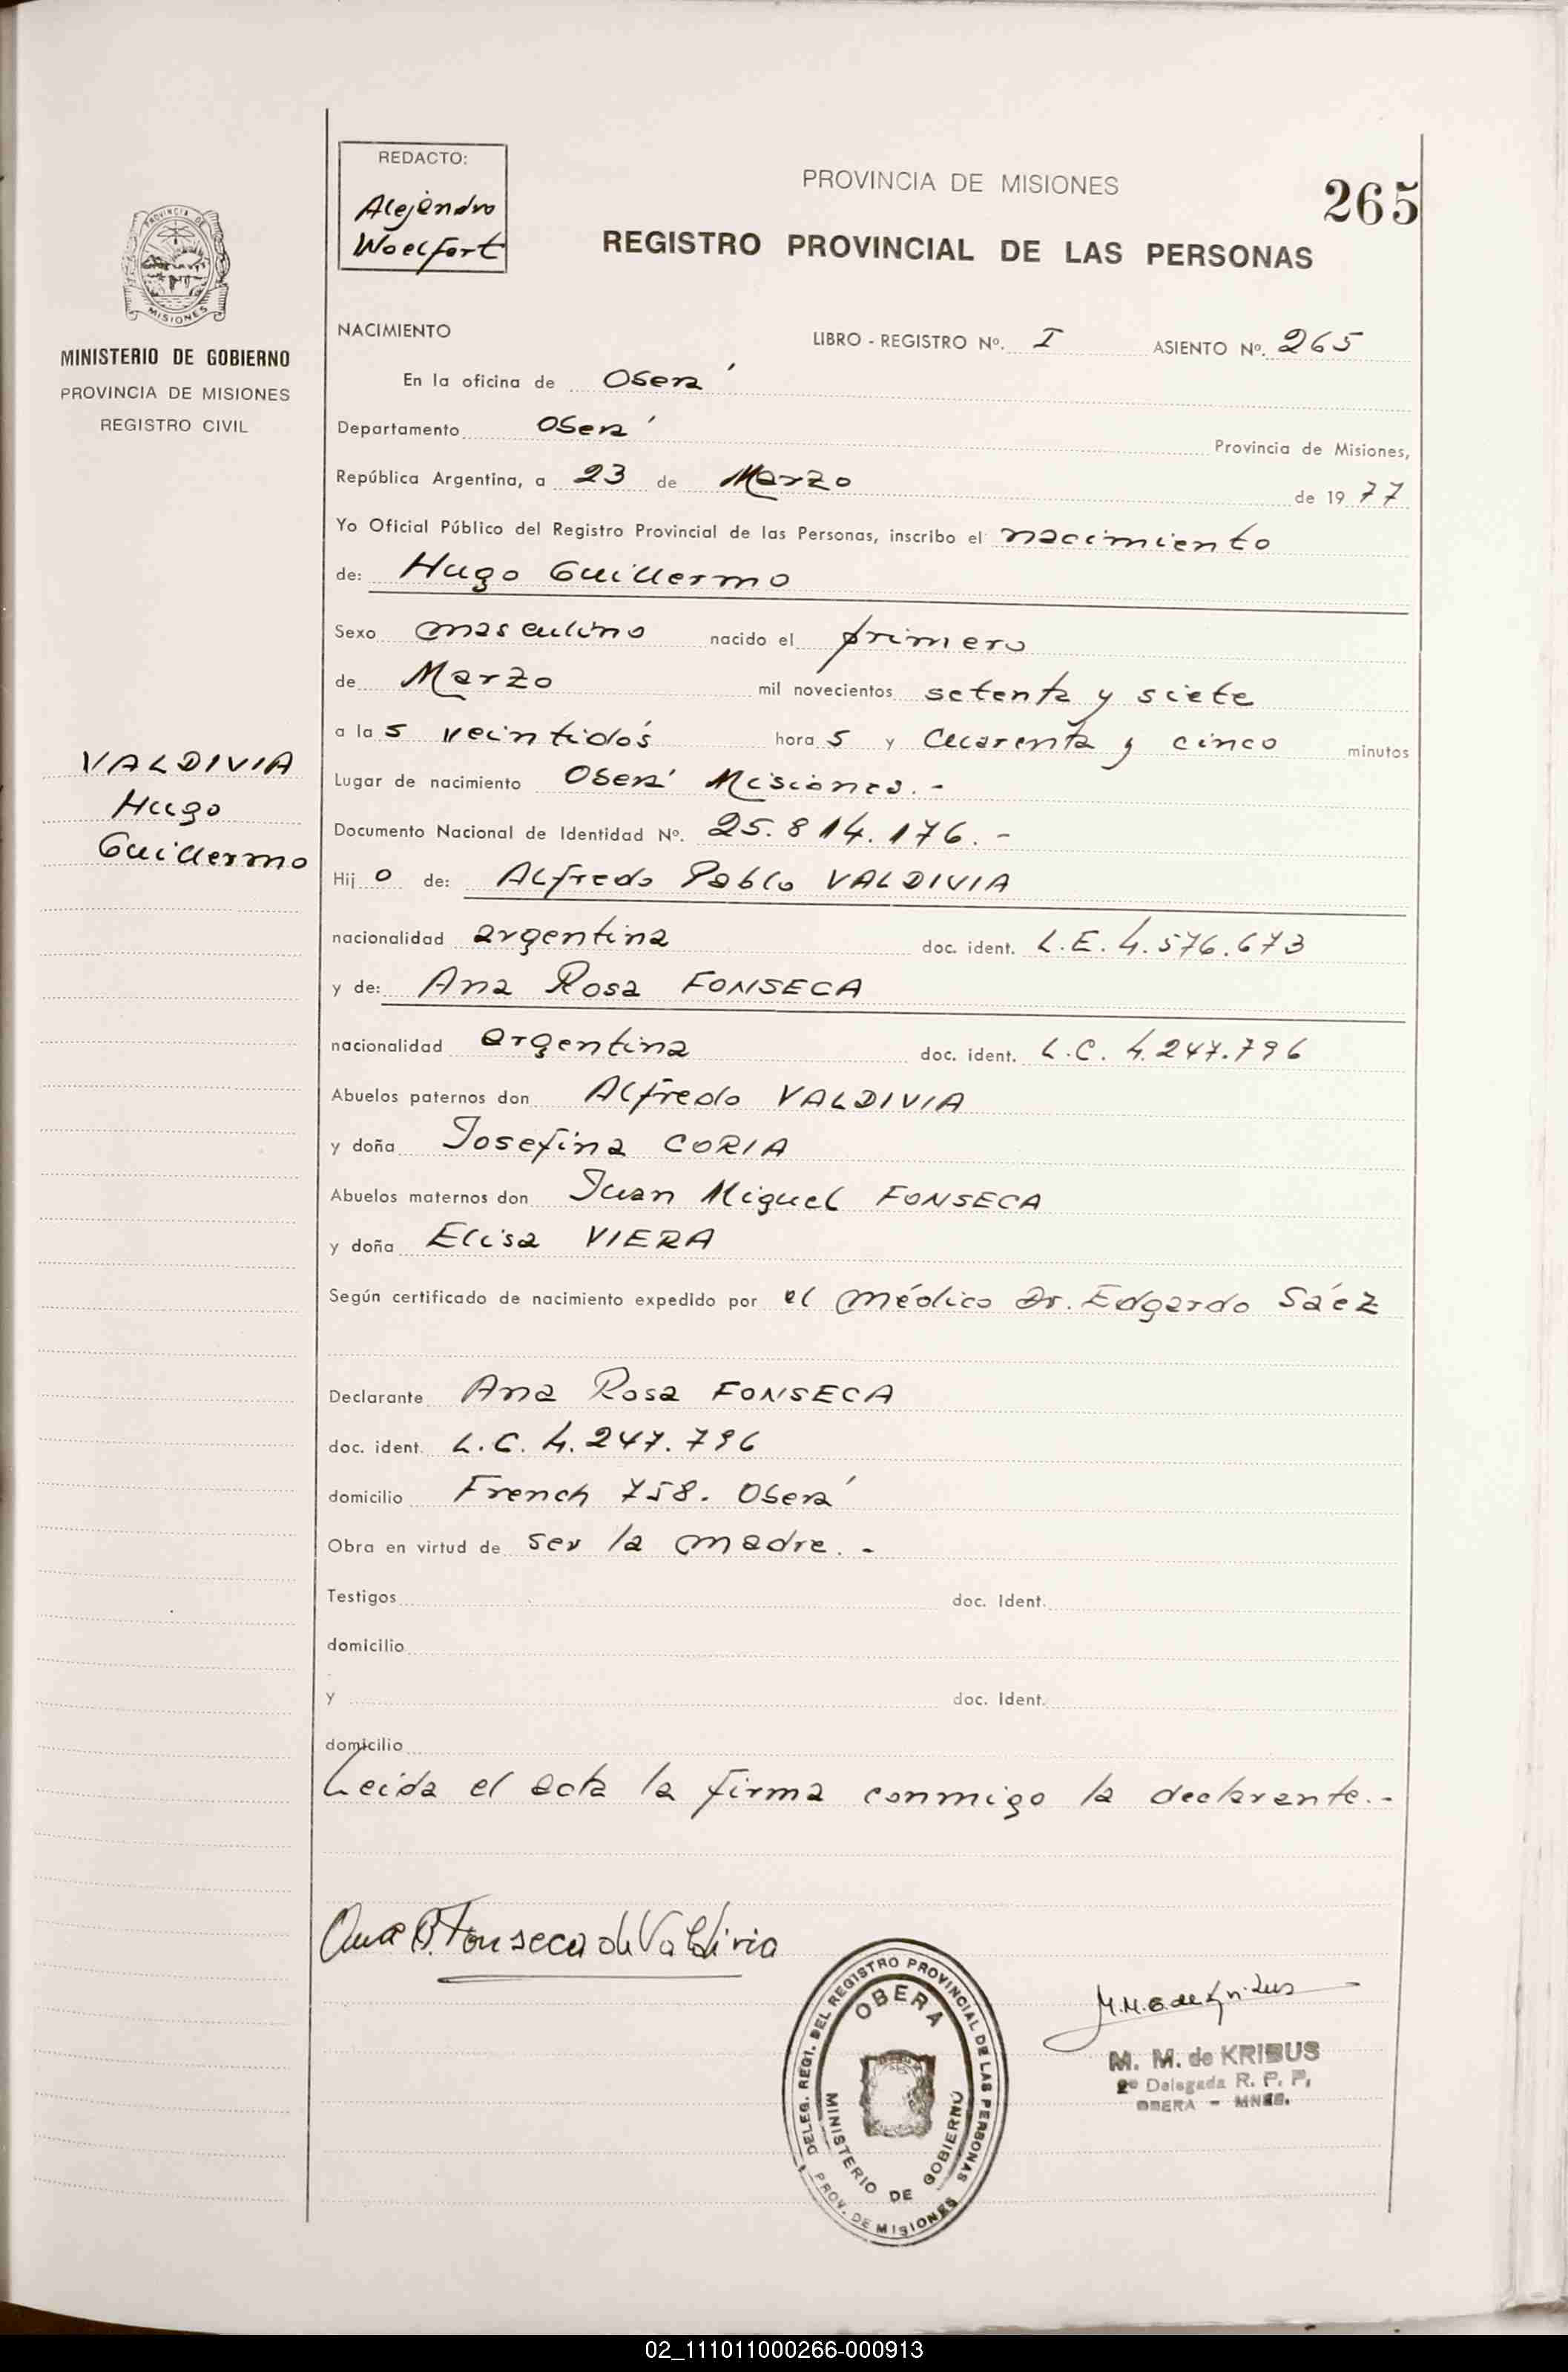 REDACTO:
Alejandro
Woelfert
PROVINCIA DE MISIONES
265
REGISTRO PROVINCIAL DE LAS PERSONAS
PROVINCIA DE
MISIONES
MINISTERIO DE GOBIERNO
PROVINCIA DE MISIONES
REGISTRO CIVIL
NACIMIENTO LIBRO - REGISTRO Nº. I ASIENTO Nº. 265
En la oficina de Oberá
Departamento Oberá Provincia de Misiones,
República Argentina, a 23 de Marzo de 19 77
Yo Oficial Público del Registro Provincial de las Personas, inscribo el nacimiento
de: Hugo Guillermo
Sexo masculino nacido el primero
de Marzo mil novecientos setenta y siete
a la s veintidós hora s y cuarenta y cinco minutos
VALDIVIA
Hugo
Guillermo
Lugar de nacimiento Oberá Misiones. -
Documento Nacional de Identidad Nº. 25.814.176. -
Hij o de: Alfredo Pablo VALDIVIA
nacionalidad argentina doc. ident. L.E. 4.576.673
y de: Ana Rosa FONSECA
nacionalidad argentina doc. ident. L.C. 4.247.796
Abuelos paternos don Alfredo VALDIVIA
y doña Josefina CORIA
Abuelos maternos don Juan Miguel FONSECA
y doña Elisa VIERA
Según certificado de nacimiento expedido por el médico Dr. Edgardo Sáez
Declarante Ana Rosa FONSECA
doc. ident. L.C. 4.247.796
domicilio French 758. Oberá
Obra en virtud de ser la madre. -
Testigos doc. Ident.
domicilio
y doc. Ident.
domicilio
Leida el acta la firma conmigo la declarante. -
Ana R. Fonseca de Valdivia
DELEG. REGI. DEL REGISTRO PROVINCIAL DE LAS PERSONAS
OBERA
MINISTERIO DE GOBIERNO
PROV. DE MISIONES
M. M. de KRIBUS
2º Delegada R. P. P.
OBERA - MNES.
02_111011000266-000913